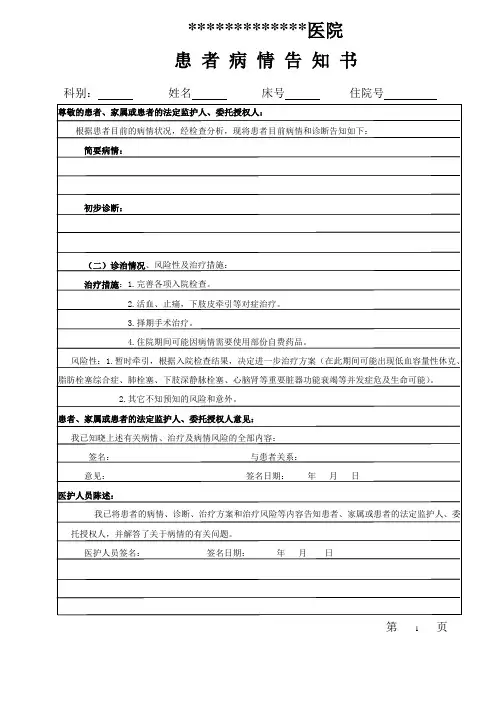 *************医院
患 者 病 情 告 知 书
科别： 姓名 床号 住院号
尊敬的患者、家属或患者的法定监护人、委托授权人：
根据患者目前的病情状况，经检查分析，现将患者目前病情和诊断告知如下：
简要病情：
初步诊断：
（二）诊治情况、风险性及治疗措施：
治疗措施：1.完善各项入院检查。
2.活血、止痛，下肢皮牵引等对症治疗。
3.择期手术治疗。
4.住院期间可能因病情需要使用部份自费药品。
风险性：1.暂时牵引，根据入院检查结果，决定进一步治疗方案（在此期间可能出现低血容量性休克、
脂肪栓塞综合症、肺栓塞、下肢深静脉栓塞、心脑肾等重要脏器功能衰竭等并发症危及生命可能）。
2.其它不知预知的风险和意外。
患者、家属或患者的法定监护人、委托授权人意见：
我已知晓上述有关病情、治疗及病情风险的全部内容：
签名： 与患者关系：
意见： 签名日期： 年 月 日
医护人员陈述：
我已将患者的病情、诊断、治疗方案和治疗风险等内容告知患者、家属或患者的法定监护人、委
托授权人，并解答了关于病情的有关问题。
医护人员签名： 签名日期： 年 月 日
第 1 页